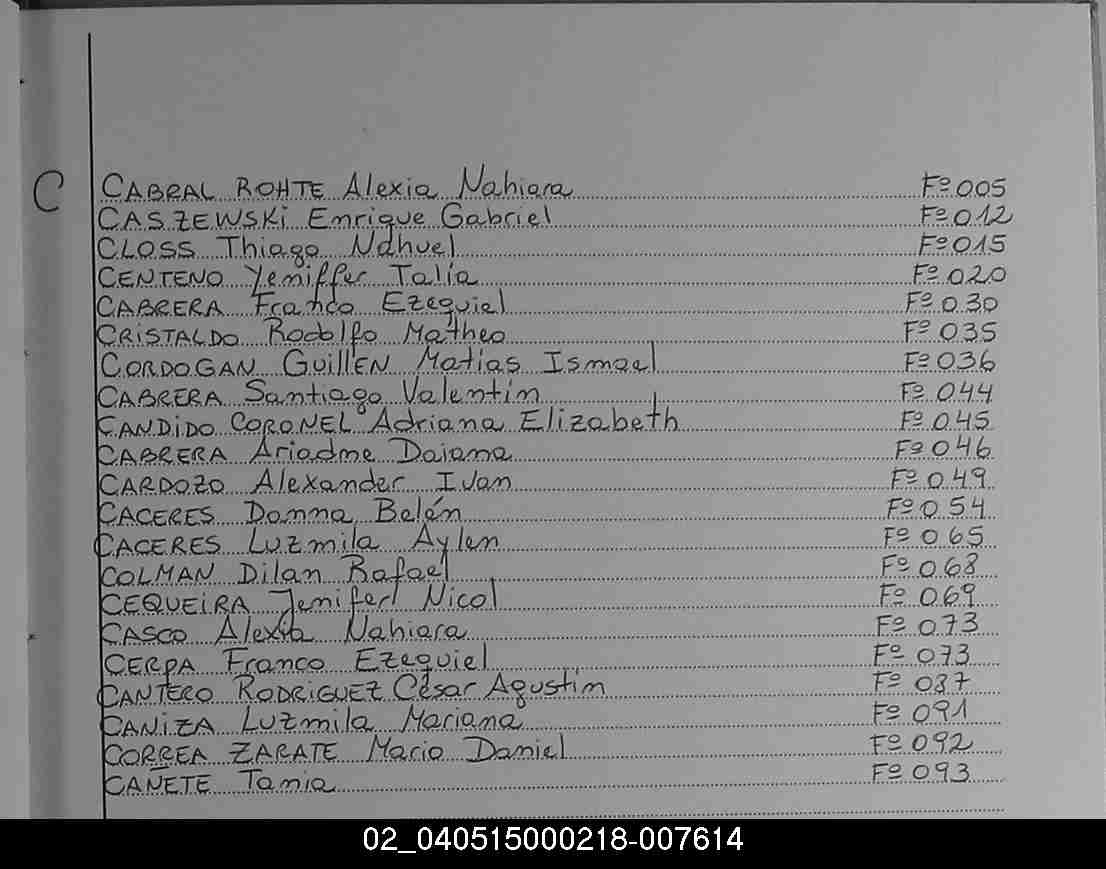 C
CABRAL ROHTE Alexia Nahiara Fº 005
CASZEWSKi Enrique Gabriel Fº 012
CLOSS Thiago Nahuel Fº 015
CENTENO Yeniffer Talia Fº 020
CABRERA Franco Ezequiel Fº 030
CRiSTALDO Rodolfo Matheo Fº 035
CORDOGAN GuillEN Matias Ismael Fº 036
CABRERA Santiago Valentin Fº 044
CANDiDO CORONEL Adriana Elizabeth Fº 045
CABRERA Ariadne Daiana Fº 046
CARDOZO Alexander Ivan Fº 049
CACERES Donna Belén Fº 054
CACERES Luzmila Aylen Fº 065
COLMAN Dilan Rafael Fº 068
CEQUEiRA Jenifer Nicol Fº 069
CASCO Alexia Nahiara Fº 073
CERPA Franco Ezequiel Fº 073
CANTERO RODRiGUEZ César Agustin Fº 087
CANiZA Luzmila Mariana Fº 091
CORREA ZARATE Mario Daniel Fº 092
CAÑETE Tania Fº 093
02_040515000218-007614